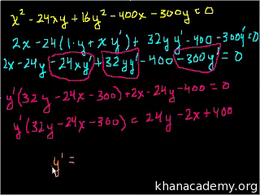 x² - 24xy + 16y² - 400x - 300y = 0
2x - 24(1·y + xy') + 32yy' - 400 - 300y' = 0
2x - 24y - 24xy' + 32yy' - 400 - 300y' = 0
y'(32y - 24x - 300) + 2x - 24y - 400 = 0
y'(32y - 24x - 300) = 24y - 2x + 400
y' =
khanacademy.org